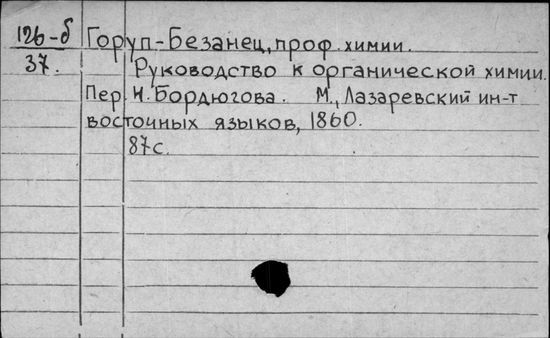 126-б
37.
Горуп-Безанец, проф. химии.
Руководство к органической химии.
Пер. Н. Бордюгова. М., Лазаревский ин-т
восточных языков, 1860.
87с.